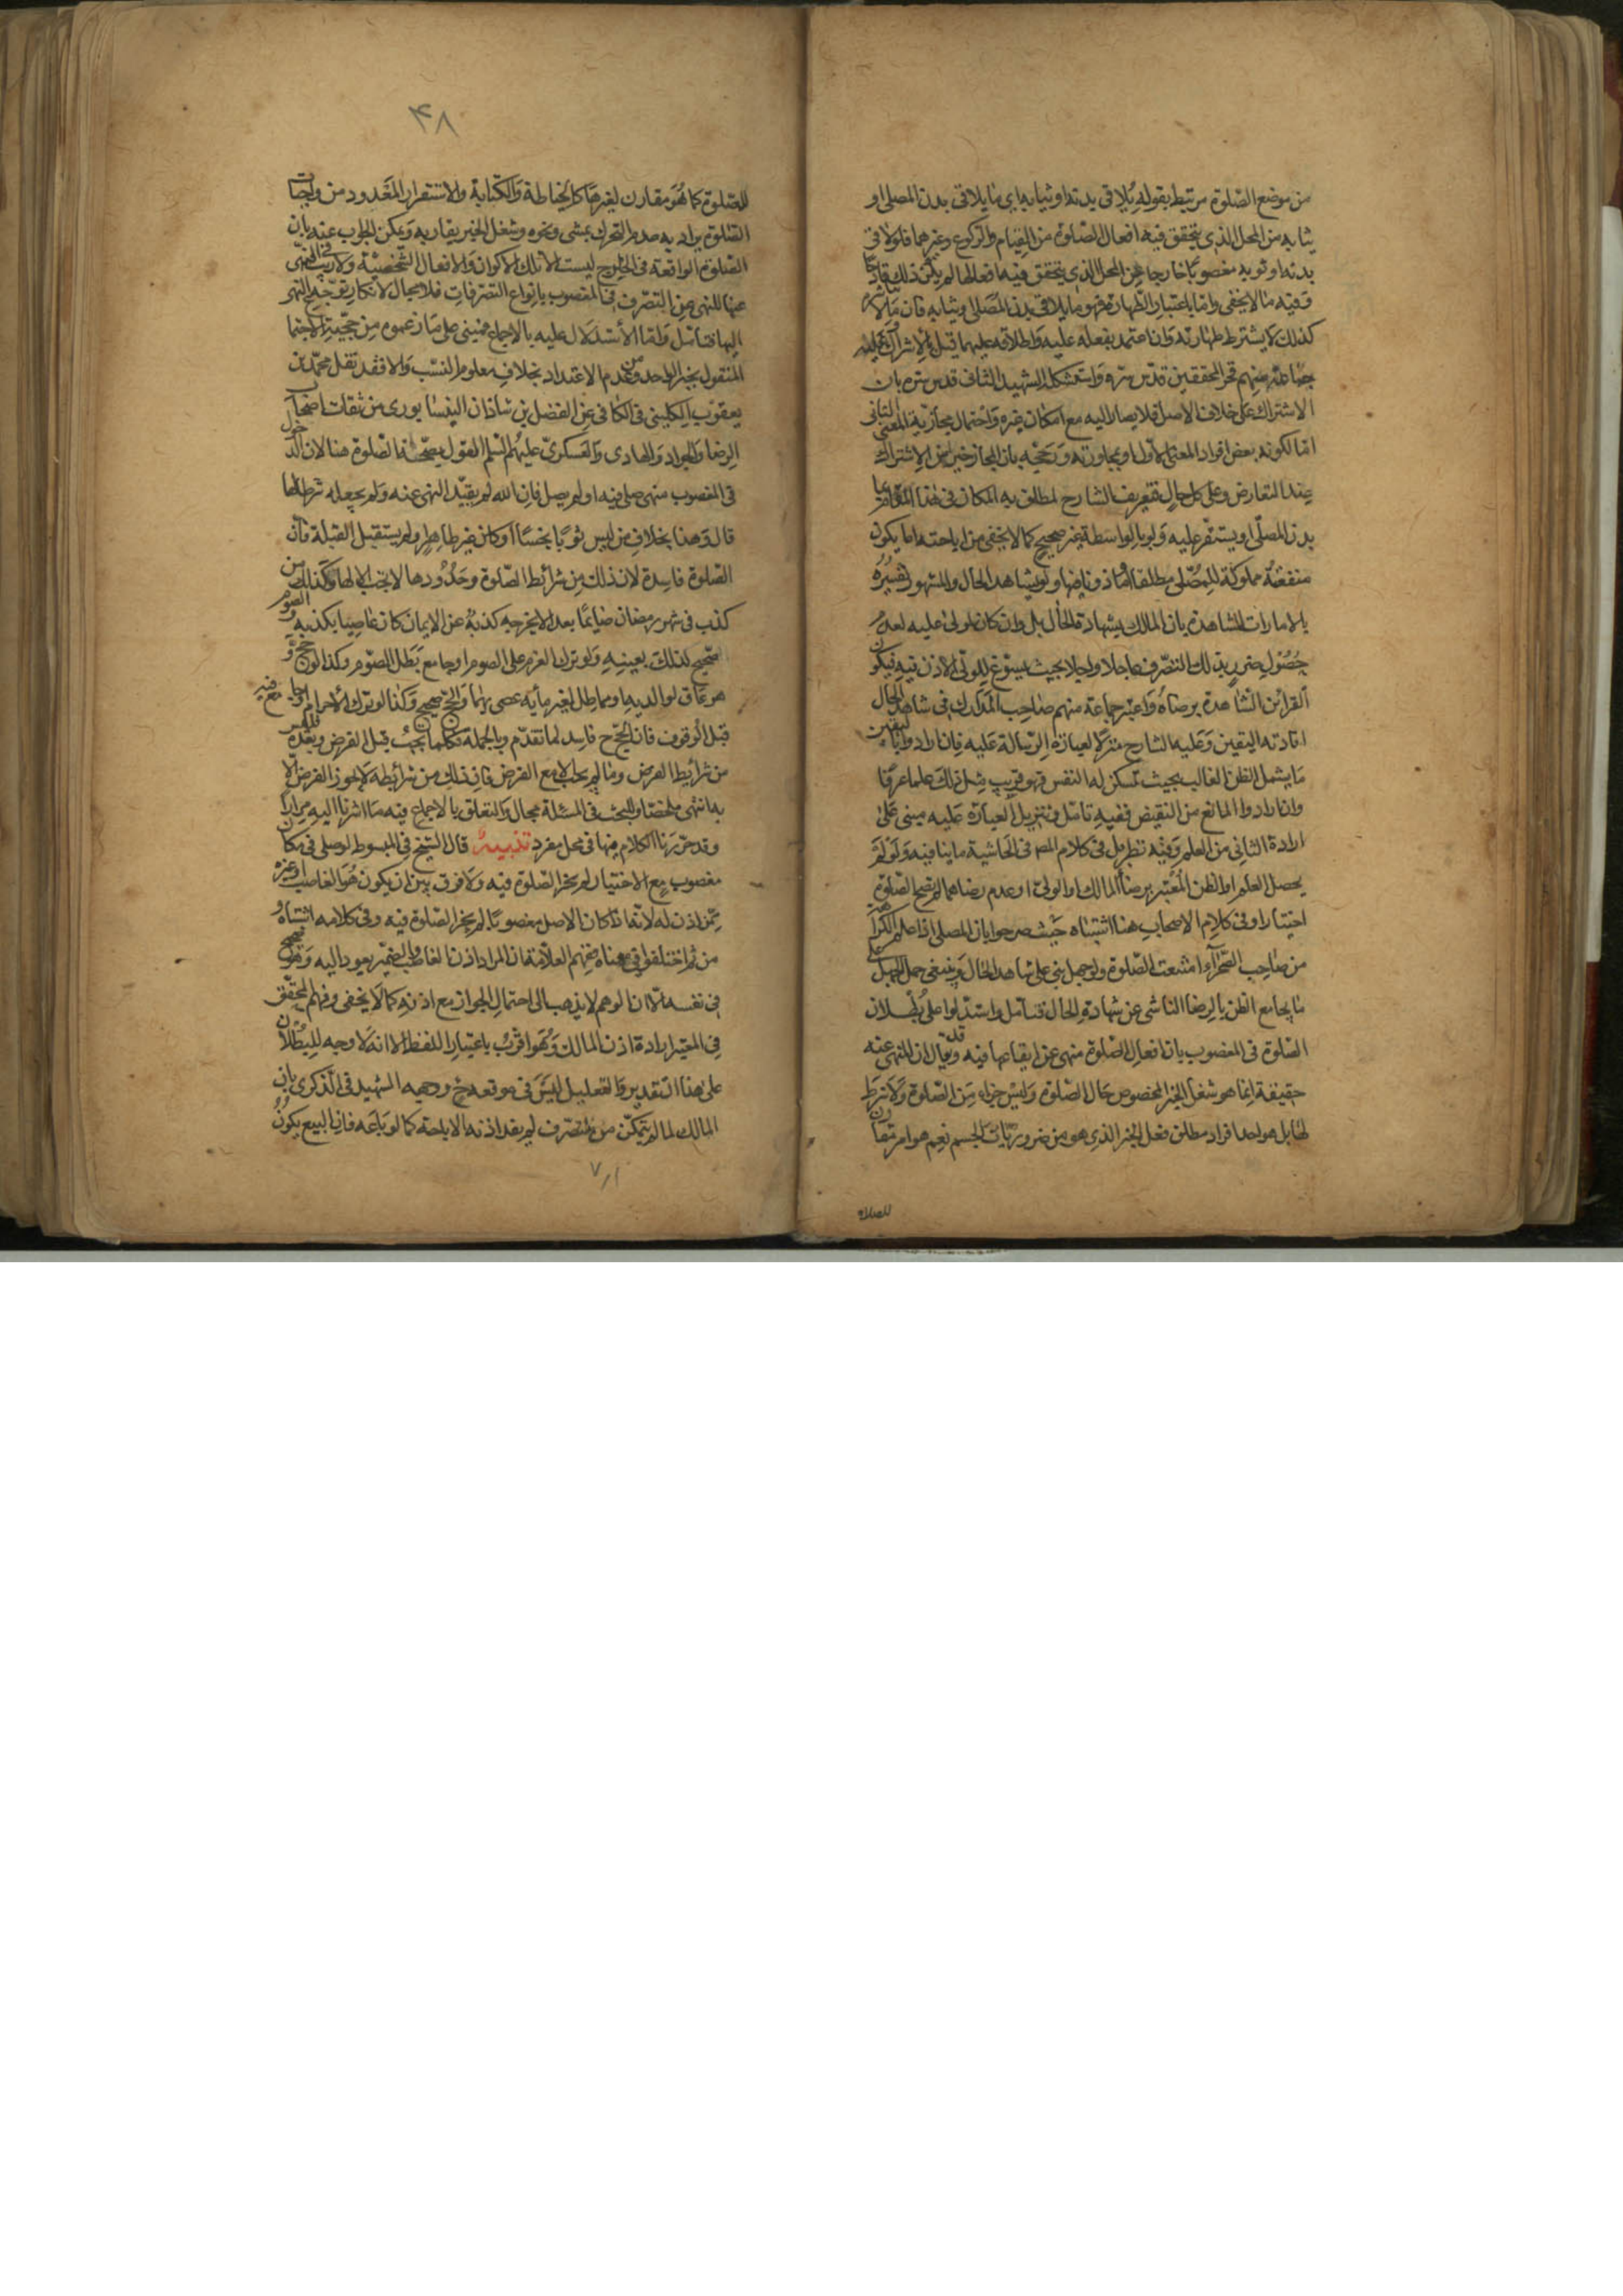 من موضع الصّلوة مرتبط بقوله يلاقى بدنه او ثيابه اى ما يلاقى بدن المصلى او
ثيابه من المحل الذى يتحقق فيه افعال الصّلوة من القيام والركوع وغيرهما فلو لاقى
بدنه او ثوبه مغصوبًا خارجا عن المحل الذى يتحقق فيه افعالها لم يكن ذلك قادحًا
وفيه ما لا يخفى وامّا باعتبار الطّهارة فهو ما يلاقى بدن المصلى وثيابه فان ما لم
كذلك لا يشترط طهارته وان اعتمد بفعله عليه واطلاقه عليهما قيل بالاشتراك
جماعة منهم فخر المحققين قدّس سرّه واستشكله الشهيد الثانى قدس سره بان
الاشتراك على خلاف الاصل فلا يصار اليه مع امكان غيره واحتمال مجازية المعنى الثانى
امّا لكونه بعض افراد المعنى الاوّل او مجاورته وترجيحه بان المجاز خير من الاشتراك
عند التعارض وعلى كل حال فتعريف الشارح لمطلق به المكان فى هذا المقام بما
بدن المصلّى او يستقر عليه ولو بالواسطة غير صحيح كما لا يخفى من اباحته اما بكون
منفعته مملوكة للمصّلى مطلقا او ماذونا فيها ولو بشاهد الحال والمشهور تفسيره
بالامارات الشاهدة بان المالك بشهادة الحال بل وان كان مولى عليه لعدم
حصول ضرر بذلك التصّرف عاجلا واجلا بحيث يسوغ للولى الاذن فيه فيكون
القرائن الشاهدة برضاه واعتبر جماعة منهم صاحب المدارك فى شاهد الحال
افادته اليقين وعليه الشارح منزلا لعبارة الرسالة عليه فان ارادوا باليقين
ما يشمل الظن الغالب بحيث تسكن له النفس فهو قريب مثل ذلك علما عرفا
وان ارادوا المانع من النقيض ففيه تامّل وتنزيل العبارة عليه مبنى على
ارادة الثانى من العلم وفيه نظر بل فى كلام المصـ فى الحاشية ما ينافيه ولو لم
يحصل العلم او الظن المعتبر برضا المالك او الولىّ او عدم رضاهما لم تصح الصّلوة
اختيارا وفى كلام الاصحاب هنا اشتباه حيث صرحوا بان المصلى اذا علم الكراهة
من صاحب الصّحرآء امتنعت الصّلوة ولو جهل بنى على شاهد الحال وينبغى حمل الجهل على
ما يجامع الظن بالرضا الناشى عن شهادة الحال فتامّل واستدّلوا على بُطلان
الصّلوة فى المغصوب بان افعال الصّلوة منهى عن ايقاعها فيه وقد يقال ان المنهى عنه
حقيقة انما هو شغل الحيّز المخصوص حال الصّلوة وليس جزاء من الصّلوة ولا شرط
لها بل هو احد افراد مطلق فعل الحيّز الذى هو من ضروريّات الجسم نعم هو امر مقارن
للصلاة
۴۸
للصّلوة كما هو مقارن لغيرها كالخياطة والكتابة والاستقرار المعدود من واجبات
الصّلوة يراد به عدم التحرك بمشى ونحوه وشغل الحيّز يقاربه ويمكن الجواب عنه بان
الصّلوة الواقعة فى الخارج ليست الا تلك الاكوان والافعال الشّخصيّة ولا ريب فى النهى
عنها للنهى عن التصرّف فى المغصوب بانواع التصرّفات فلا مجال لانكار توجّه النهى
اليها فتامّل وامّا الاستدلال عليه بالاجماع فمبنى على ما زعموه من حجّية الاجماع
المنقول بخبر الواحد ومن عدم الاعتداد بخلاف معلوم النسب والا فقد نقل محمّد بن
يعقوب الكلينى فى الكافى عن الفضل بن شاذان النيسابورى من ثقات اصحاب
الرضا والجواد والهادى والعسكرى عليهم السّلم القول بصحّة الصّلوة هنا لان الدخول
فى المغصوب منهى صلى فيه او لم يصل فان الله لم يقيّد النهى عنه ولم يجعله شرطا لها
قال وهذا بخلاف من لبس ثوبًا نجسًا او كان غير طاهر ولم يستقبل القبلة فان
الصّلوة فاسدة لان ذلك من شرائط الصّلوة وحدودها لا يجب الا لها وكذلك من
كذب فى شهر رمضان صايمًا بعد ان لا يخرجه كذبه عن الايمان كان عاصيا بكذبه والصوم
صحيح لذلك بعينه ولو ترك العزم على الصوم او جامع بَطل الصّوم وكذا لو حجّ و
هو عاق لوالديه او مماطل لغريمه عصى بهما والحجّ صحيح وكذا لو ترك الاحرام او جامع فيه
قبل الوقوف فان الحجّ فاسد لما تقدّم وبالجملة فكلما يجب قبل الفرض وبعده فليس
من شرائط الفرض وما لم يجب الا مع الفرض فان ذلك من شرائطه لا يجوز الفرض الا
به انتهى ملخصًا وللبحث فى المسئلة مجال والتعلق بالاجماع فيه ما اشرنا اليه مرارًا
وقد حرّرنا الكلام فيها فى محل مفرد تنبيهٌ قال الشيخ فى المبسوط لو صلى فى مكان
مغصوب مع الاختيار لم يجز الصّلوة فيه ولا فرق بين ان يكون هو الغاصب او غيره
ممّن اذن له لانّه اذا كان الاصل مغصوبًا لم يجز الصّلوة فيه وفى كلامه اشتباه و
من ثم اختلفوا فى معناه ففهم العلّامة ان المراد اذن الغاصب والضمير يعود اليه وهو صحيح
فى نفسه الّا ان الوهم لا يذهب الى احتمال الجواز مع اذنه كما لا يخفى وفهم المحقّق
فى المعتبر ارادة اذن المالك وهو اقرب باعتبار اللفظ الا انه لا وجه للبطلان
على هذا التقدير والتعليل ليس فى موقعه ح ووجهه الشهيد فى الذكرى بان
المالك لما لم يتمكّن من التصّرف لم يفد اذنه الاباحة كما لو باعه فان البيع يكون